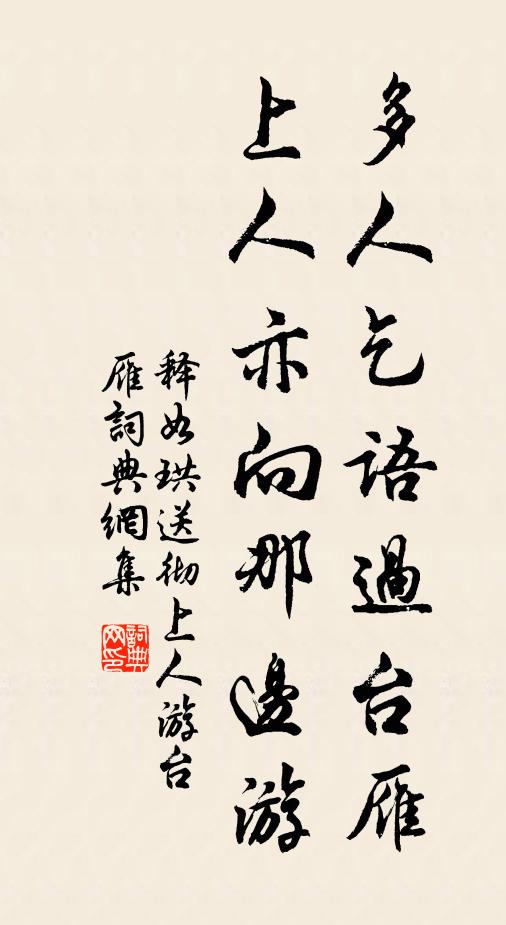 多人乞語過台雁
上人亦向那邊游
释如珙送彻上人游台
雁詞典網集
詞典网印